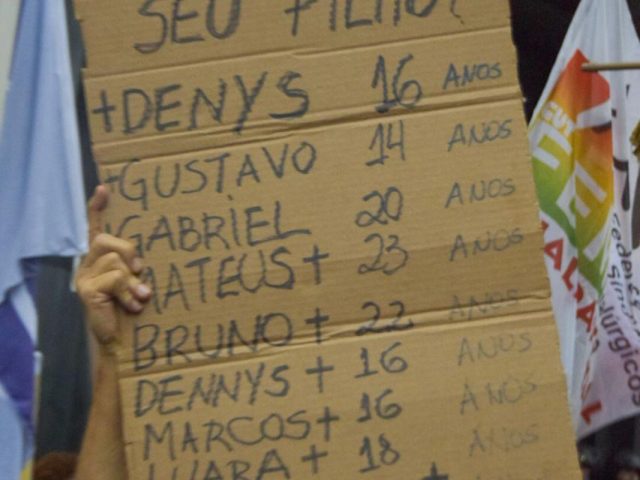 SEU FILHO?
+DENYS 16 ANOS
+GUSTAVO 14 ANOS
+GABRIEL 20 ANOS
MATEUS+ 23 ANOS
BRUNO+ 22 ANOS
DENNYS + 16 ANOS
MARCOS+ 16 ANOS
LUARA+ 18 ANOS